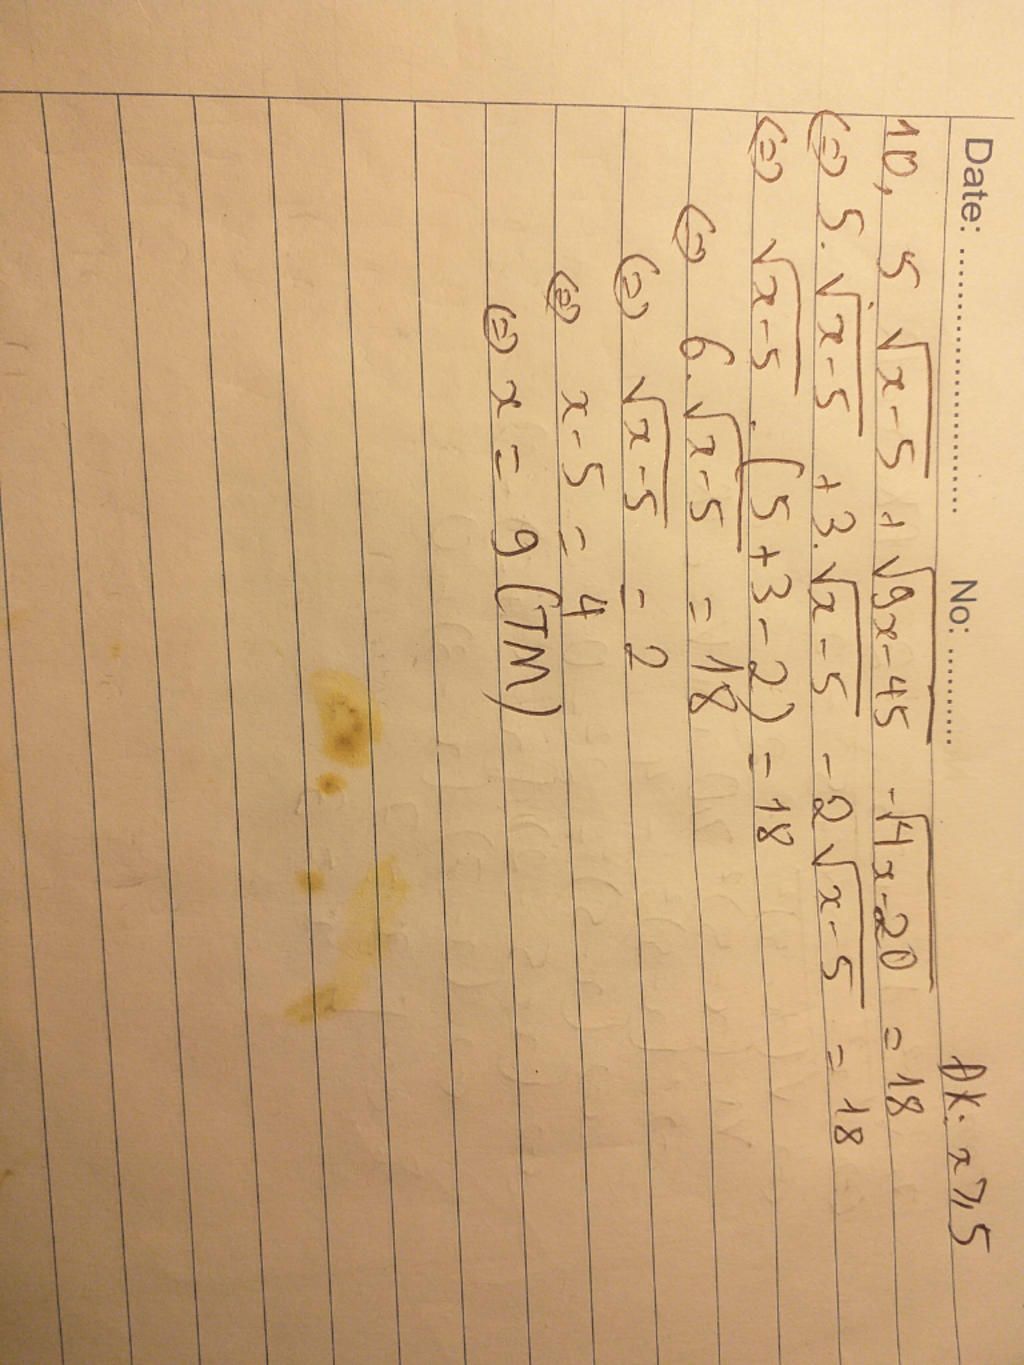 Date: ........................ No: ..........
ĐK: x ⩾ 5
10, 5 √(x-5) + √(9x-45) - √(4x-20) = 18
(=) 5.√(x-5) + 3.√(x-5) - 2√(x-5) = 18
(=) √(x-5) . (5+3-2) = 18
(=) 6.√(x-5) = 18
(=) √(x-5) = 2
(=) x-5 = 4
(=) x = 9 (TM)